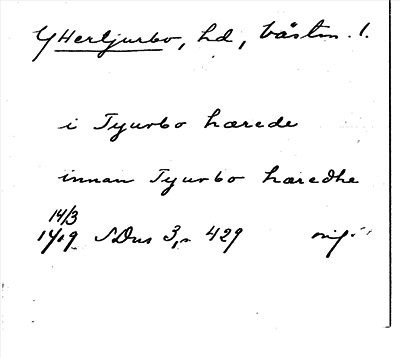 Yttertjurbo, hd, Västm. l.
i Tyurbo hærede
innan Tyurbo hæredhe
14/3
1419 SDns 3, s 429 orig.